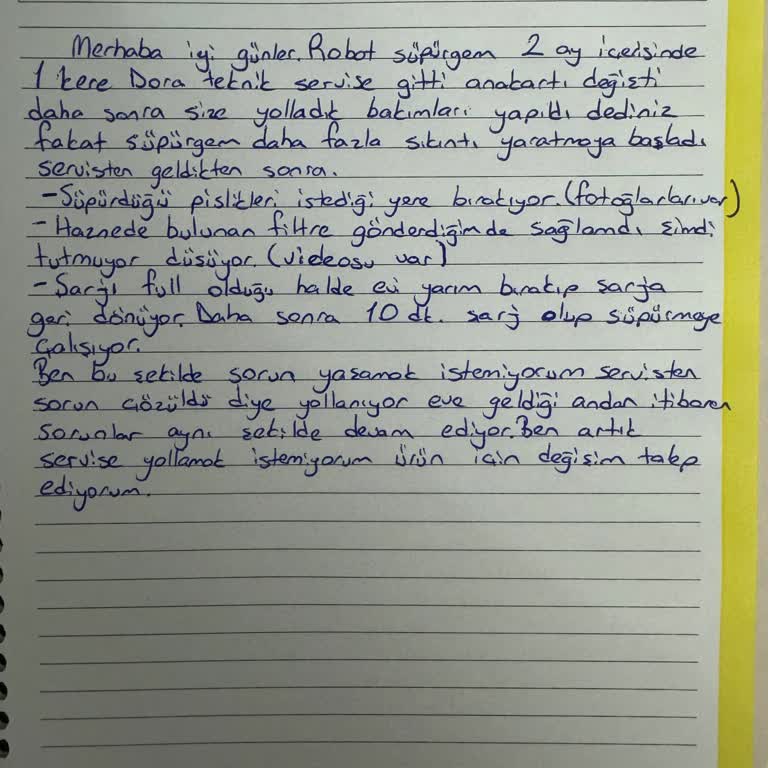 Merhaba iyi günler. Robot süpürgem 2 ay içerisinde
1 kere Dora teknik servise gitti anakartı değişti
daha sonra size yolladık bakımları yapıldı dediniz
fakat süpürgem daha fazla sıkıntı yaratmaya başladı
servisten geldikten sonra.
-Süpürdüğü pislikleri istediği yere bırakıyor. (fotoğlarları var)
- Haznede bulunan filtre gönderdiğimde sağlamdı şimdi
tutmuyor düşüyor. (videosu var)
- Sarjı full olduğu halde evi yarım bırakıp sarja
geri dönüyor. Daha sonra 10 dk. sarj olup süpürmeye
çalışıyor.
Ben bu şekilde sorun yaşamak istemiyorum servisten
sorun çözüldü diye yollanıyor eve geldiği andan itibaren
sorunlar aynı şekilde devam ediyor. Ben artık
servise yollamak istemiyorum ürün için değişim talep
ediyorum.